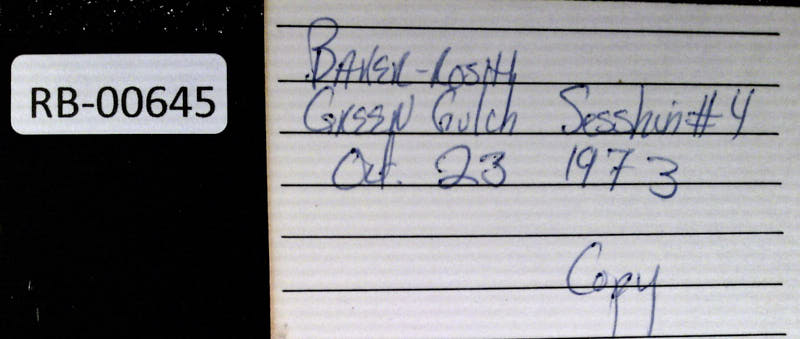 RB-00645
BAKER-ROSHI
GREEN Gulch Sesshin #4
Oct. 23 1973
Copy